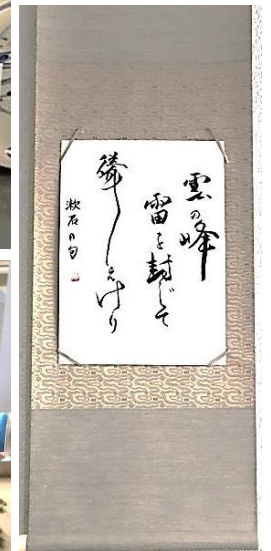 雲の峰
雷を封じて
聳えけり
漱石の句